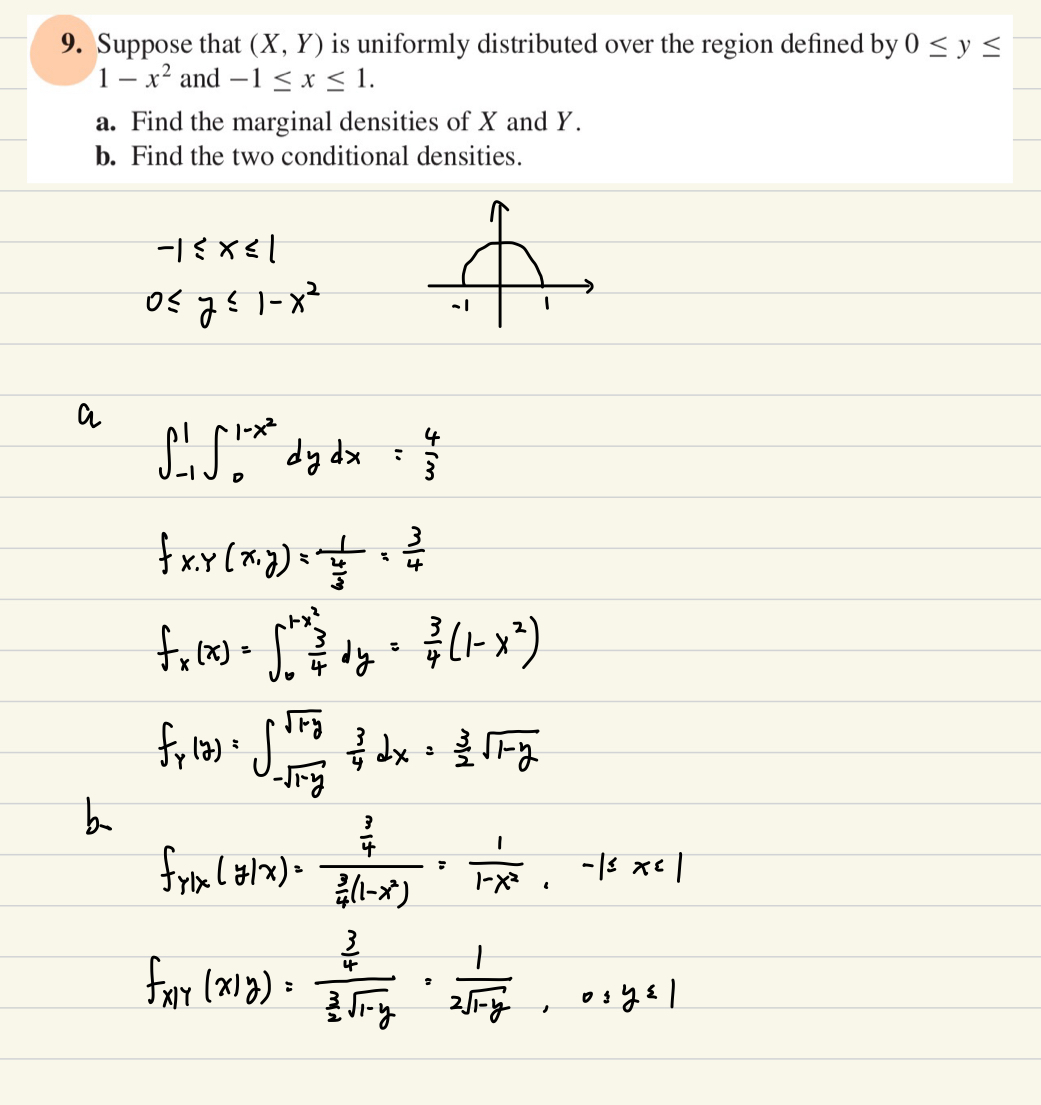 9. Suppose that (X, Y) is uniformly distributed over the region defined by 0 ≤ y ≤
1 − x² and −1 ≤ x ≤ 1.
a. Find the marginal densities of X and Y.
b. Find the two conditional densities.
-1 ≤ x ≤ 1
0 ≤ y ≤ 1-x²
-1 1
a
∫_{-1}^{1} ∫_{0}^{1-x²} dy dx = 4/3
f_{X,Y}(x,y) = 1/(4/3) = 3/4
f_X(x) = ∫_{0}^{1-x²} 3/4 dy = 3/4(1-x²)
f_Y(y) = ∫_{-√(1-y)}^{√(1-y)} 3/4 dx = 3/2 √(1-y)
b
f_{Y|X}(y|x) = (3/4)/(3/4(1-x²)) = 1/(1-x²), -1 ≤ x ≤ 1
f_{X|Y}(x|y) = (3/4)/(3/2 √(1-y)) = 1/(2√(1-y)), 0 ≤ y ≤ 1